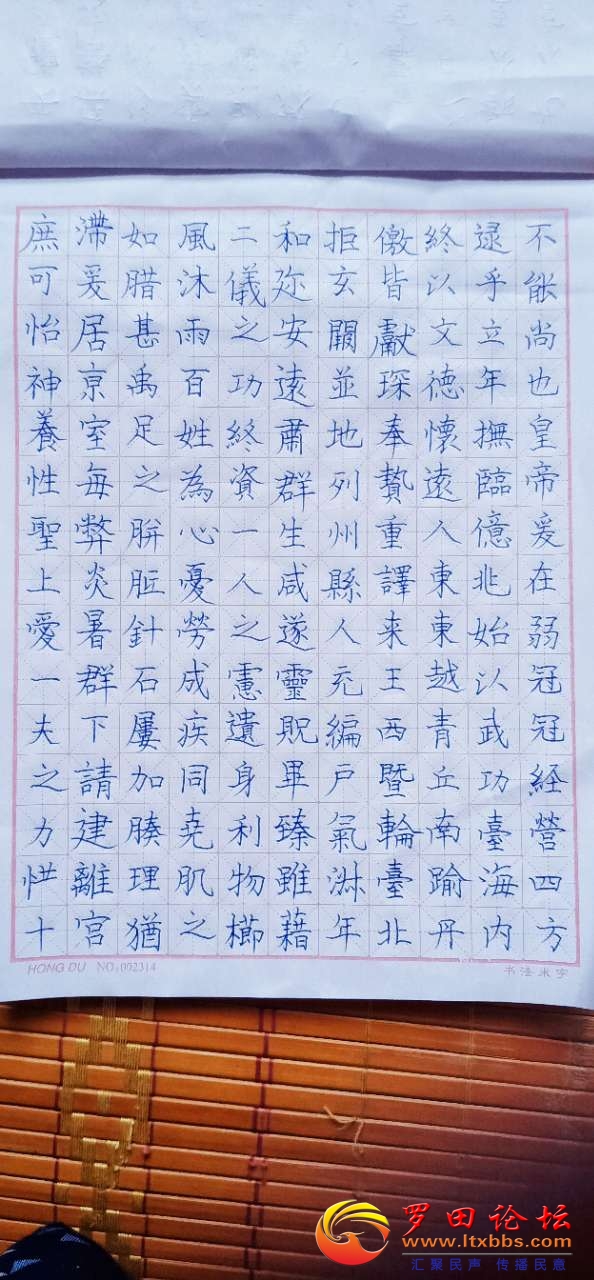 不能尚也皇帝爰在弱冠冠経營四方
逯乎立年撫臨億兆始以武功臺海内
終以文德懷遠人東東越青丘南踰丹
儌皆獻琛奉贄重譯来王西暨輪臺北
拒玄闕並地列州縣人充編戶氣淋年
和迩安遠肅群生咸遂靈貺畢臻雖藉
二儀之功終資一人之憲遺身利物櫛
風沐雨百姓為心憂勞成疾同堯肌之
如腊甚禹足之胼胝針石屢加腠理猶
滯爰居京室每弊炎暑群下請建離宮
庶可怡神養性聖上愛一夫之力惜十
HONG DU NO:002314
书法米字
罗田论坛
www.ltxbbs.com
汇聚民声 传播民意